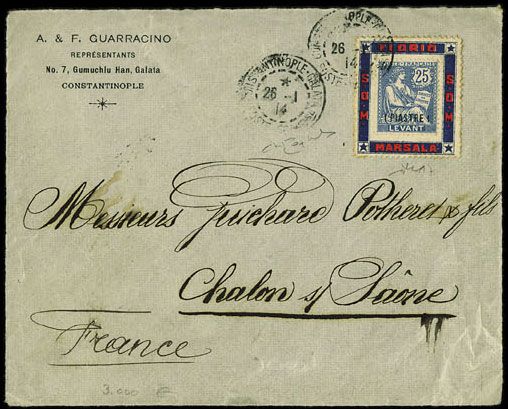 A. & F. GUARRACINO
REPRÉSENTANTS
No. 7, Gumuchlu Han, Galata
CONSTANTINOPLE
CONSTANTINOPLE GALATA
26 -1
14
26
14
FLORIO
S.O.M
S.O.M
25
1 PIASTRE 1
LEVANT
MARSALA
Messieurs Guichard Potheret & fils
Chalon s/ Saône
France
3.000